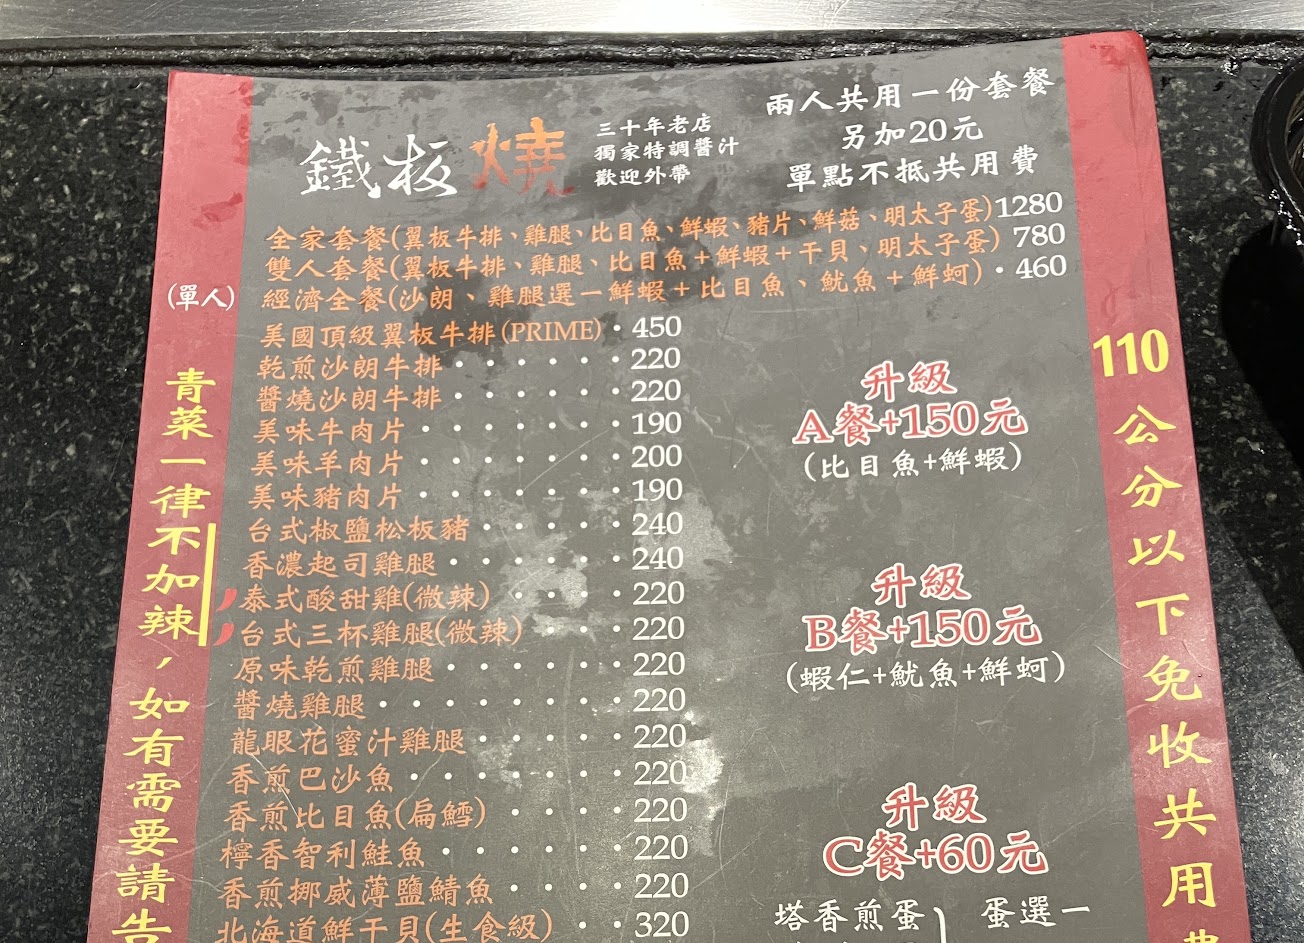 鐵板燒
三十年老店
獨家特調醬汁
歡迎外帶
兩人共用一份套餐
另加20元
單點不抵共用費
全家套餐(翼板牛排、雞腿、比目魚、鮮蝦、豬片、鮮菇、明太子蛋)1280
雙人套餐(翼板牛排、雞腿、比目魚+鮮蝦+干貝、明太子蛋) 780
(單人) 經濟全餐(沙朗、雞腿選一鮮蝦+比目魚、魷魚+鮮蚵)·460
美國頂級翼板牛排(PRIME)·450
乾煎沙朗牛排······220
醬燒沙朗牛排······220
美味牛肉片·······190
美味羊肉片·······200
美味豬肉片·······190
台式椒鹽松板豬·····240
香濃起司雞腿······240
泰式酸甜雞(微辣)····220
台式三杯雞腿(微辣)···220
原味乾煎雞腿······220
醬燒雞腿········220
龍眼花蜜汁雞腿·····220
香煎巴沙魚·······220
香煎比目魚(扁鱈)····220
檸香智利鮭魚······220
香煎挪威薄鹽鯖魚····220
北海道鮮干貝(生食級)··320
升級
A餐+150元
(比目魚+鮮蝦)
升級
B餐+150元
(蝦仁+魷魚+鮮蚵)
升級
C餐+60元
塔香煎蛋 蛋選一
青菜一律不加辣,如有需要請告
110公分以下免收共用費